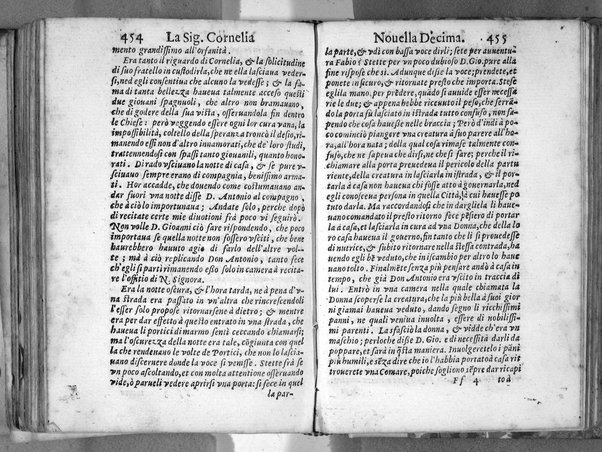 454 La Sig. Cornelia
mento grandissimo all'orfanità.
Era tanto il riguardo di Cornelia, & la solicitudine
di suo fratello in custodirla, che ne ella lasciaua veder-
si, ned egli consentiua che alcuno la vedesse; & la fa-
ma di tanta bellezza haueua talmente acceso questi
due giouani spagnuoli, che altro non bramauano,
che di godere della sua vista, osseruandola fin dentro
le Chiese: però veggendo essere ogni lor cura vana, la
impossibilità, coltello della speranza troncò il desio, ri-
manendo essi non d'altro innamorati, che de' loro studi,
trattennendosi con spassi tanto giouanili, quanto hono-
rati. Di rado vsciuano la notte di casa, & se pure v-
sciuano sempre erano di compagnia, benissimo arma-
ti. Hor accadde, che douendo come costumauano an-
dar fuori vna notte disse D. Antonio al compagno,
che à lo importunaua; Andate solo, percioche dopò
di recitate certe mie diuotioni frà poco vi seguirò.
Non volle D. Gioanni ciò fare rispondendo, che poco
importaua se quella notte non fossero vsciti, che bene
hauerebbero hauuto agio di farlo dell'altre vol-
te; mà à ciò replicando Don Antonio, tanto fece
ch'egli si partì rimanendo esso solo in camera à recita-
re l'offitio di N. Signora.
Era la notte oscura, & l'hora tarda, ne à pena d'v-
na strada era passato in vn'altra che rincrescendoli
l'esser solo propose ritornarsene à dietro; & mentre
era per dar effetto à questo entrato in vna strada, che
haueua li portici di marmo sentì cennando chiamarsi;
ma l'oscurezza della notte era tale, cōgiunta con quel
la che rendenano le volte de Portici, che non lo lascia-
uano discernere donde la voce si venisse. Stette frà se
vn poco ascoltando, et con molta attentione osseruando
vide, ò paruelì vedere aprirsi vna porta: si fece in quel
la par-
Nouella Decima. 455
la parte, & vdì con bassa voce dirli; sete per auuentu-
ra Fabio? Stette per vn poco dubioso D. Gio. pure alla
fine rispose che si. Adunque disse la voce; prendete, et
ponete in securo, & ritornate presto che importa. Stese
egli la mano, per prēdere, quādo si auuide esser necessa
rie le due; & appena hebbe riceuuto il peso, che serrā-
do la porta fù lasciato in istrada tutto confuso, non sa-
pendo che cosa hauesse nelle braccia; Però d'indi à po-
co cominciò piangere vna creatura à suo parere all'ho-
ra, all'hora nata; dalla qual cosa rimase talmente con-
fuso, che ne sapeua che dirsi, ne che si fare; perche il ri-
chiamare alla porta preuedeua il pericolo della partu
riente, della creatura in lasciarla in istrada, & il por-
tarla à casa non haueua chi fosse atto à gouernarla, ned
egli conosceua persona in quella Città, à cui questo hauesse
possuto darla. Ma raccordandosi che in dargliela li haue-
uano comandato il presto ritorno fece pēsiero di portar
la à casa, et lasciarla in cura ad vna Donna, che della lo
ro casa haueua il gouerno, fin tanto che li si prouedesse
di nutrice, & subito ritornare nella stessa contrada, ha
uendo egli bē veduto, che in iscambio per altro lo haue
uano tolto. Finalmēte senza più pensare andò à casa in
tempo, che già Don Antonio era vscito in traccia di
lui. Entrò in vna camera nella quale chiamata la
Donna scoperse la creatura, che la più bella à suoi gior
ni giamai haueua veduto, dando segno li ricchissimi
panni, ne quali veniua inuolta, essere di nobilissi-
mi parenti. La sfasciò la donna, & vidde ch'era vn
maschio; perloche disse D. Gio. e di necessità darli da
poppare, et sarà in q̃sta maniera. Inuolgeretelo i pāni
più humili, e sēza dire che io l'habbia portato à casa rit
trouerete vna Comare, poiche sogliono sēpre dar ricapi
Ff 4 to à